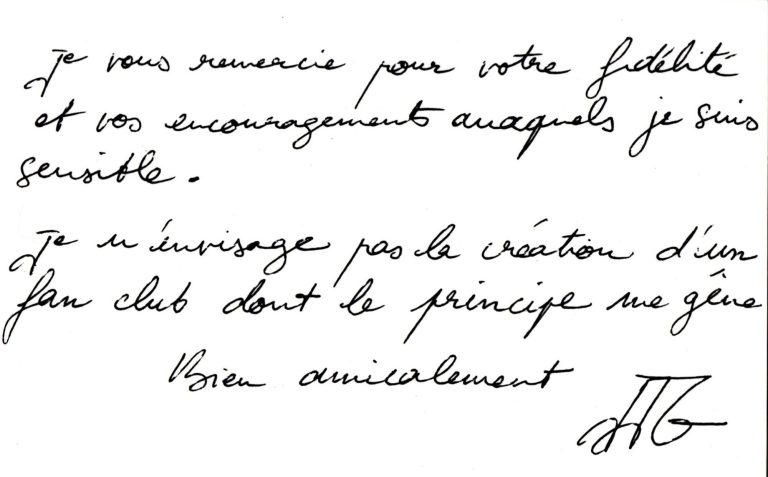 Je vous remercie pour votre fidélité
et vos encouragements auxquels je suis
sensible.
Je n'envisage pas la création d'un
fan club dont le principe me gêne
Bien amicalement